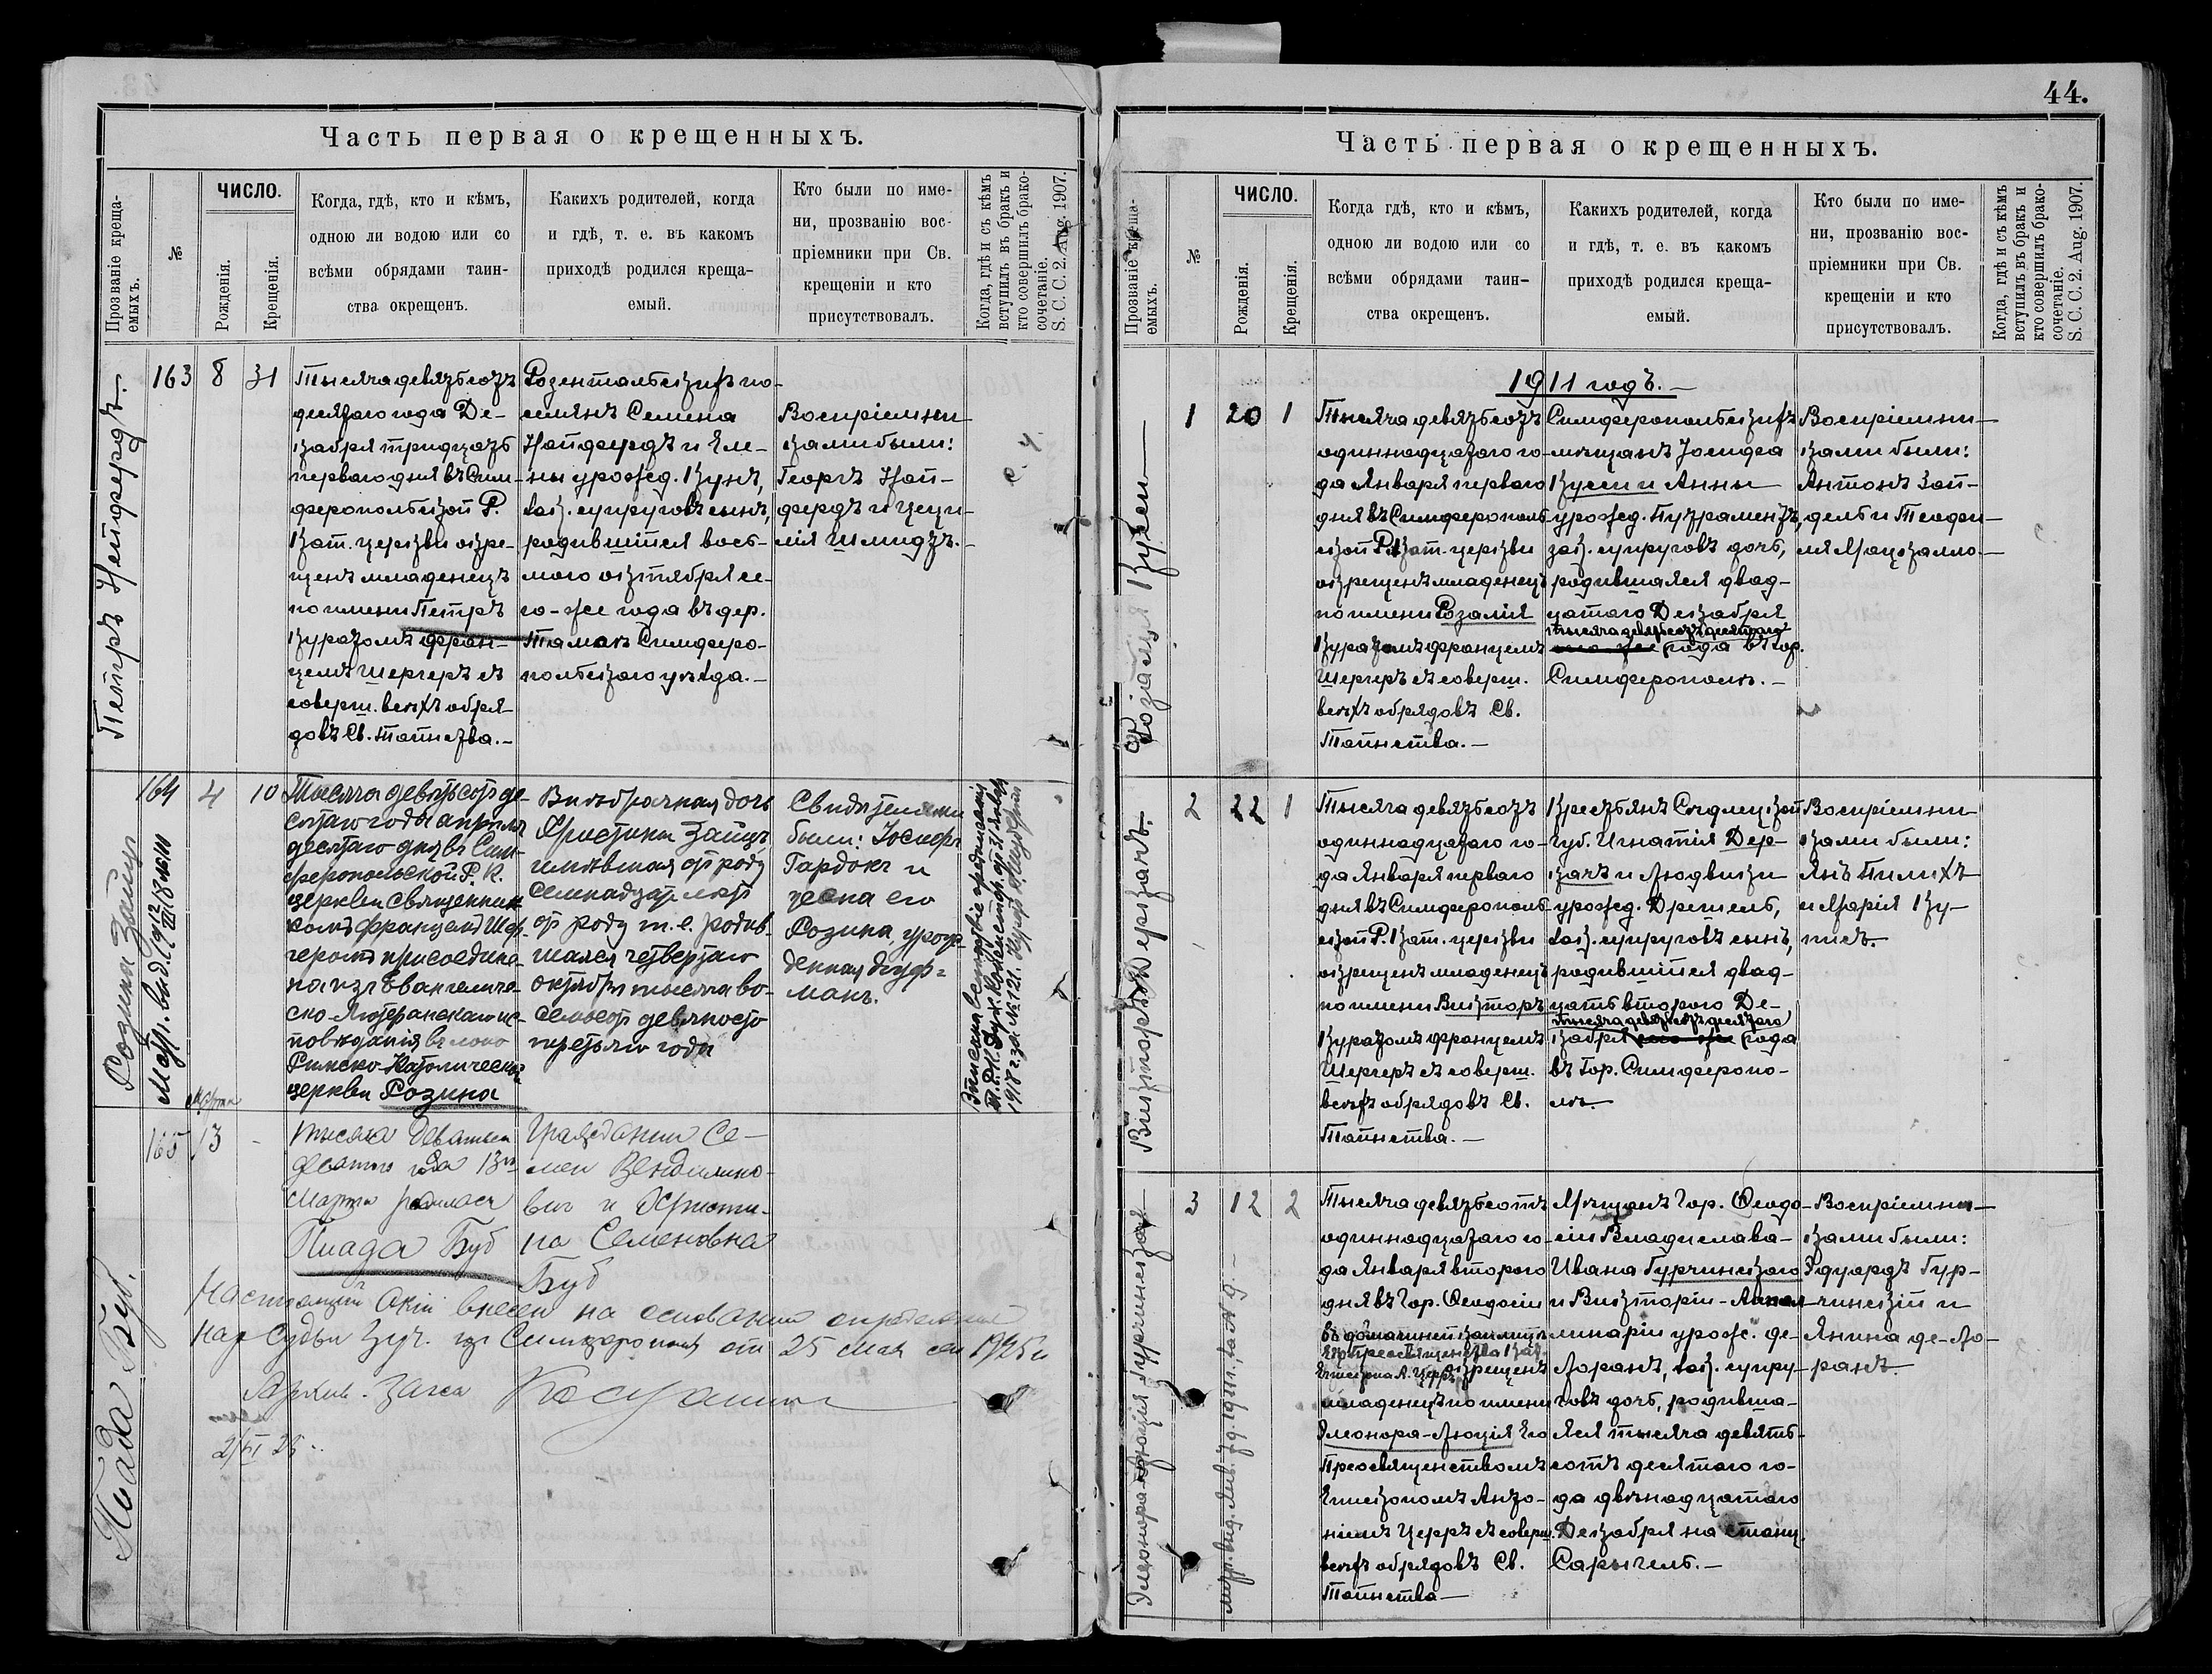 Часть первая о крещенныхъ.
Прозваніе креща-
емыхъ.
№
ЧИСЛО.
Рожденія.
Крещенія.
Когда, гдѣ, кто и кѣмъ,
одною ли водою или со
всѣми обрядами таин-
ства окрещенъ.
Какихъ родителей, когда
и гдѣ, т. е. въ какомъ
приходѣ родился креща-
емый.
Кто были по име-
ни, прозванію вос-
пріемники при Св.
крещеніи и кто
присутствовалъ.
Когда, гдѣ и съ кѣмъ
вступилъ въ бракъ и
кто совершилъ брако-
сочетаніе.
S. C. C. 2. Aug. 1907.
Петръ Нейфердъ.
163
8
31
Тысяча девятьсотъ
десятаго года Де-
кабря тридцать
перваго дня въ Сим-
феропольской Р.
Кат. церкви окре-
щенъ младенецъ
по имени Петръ
Куратомъ Фран-
цемъ Шергеръ съ
соверш. всѣхъ обря-
довъ Св. Таинства.—
Розентальскихъ по-
селянъ Семена
Нейфердъ и Еле-
ны урожд. Кунъ,
зак. супруговъ сынъ,
родившійся вось-
мого октября се-
го-же года въ дер.
Тамакъ Симферо-
польскаго уѣзда.—
Воспріемни
ками были:
Георгъ Ней-
фердъ и Цеци-
лія Шмидтъ.—
Розина Зайцъ
Метр. выд. 1912
164
4
10
Тысяча девятьсотъ де-
сятаго года апрѣля
десятаго дня въ Сим-
феропольской Р. К.
церкви священни-
комъ Францемъ Шер-
геромъ присоедине-
на изъ Евангеличе-
ско-Лютеранскаго ис-
повѣданія въ лоно
Римско-Католической
церкви Розина
Внѣбрачная дочь
Христины Зайцъ,
имѣвшая отъ роду
семнадцать лѣтъ
отъ роду т. е. родив-
шаяся четвертаго
октября тысяча во-
семьсотъ девяносто
третьяго года
Свидѣтелями
были: Іосифъ
Гардокъ и
жена его
Розина, урож-
денная Гуф-
манъ.
Пиада Буб.
165
Марта
13
-
тысяча девятьсот
десятого года 13го
Марта родилась
Пиада Буб
Граждании Се-
мен Венделино-
вич и Христи-
на Семеновна
Буб
Настоящий акт внесен на основании определения
Нар Судьи уч. гр Симферополя от 25 мая 1925 г
Архив. Загса
2/VI 25
44.
Часть первая о крещенныхъ.
Прозваніе креща-
емыхъ.
№
ЧИСЛО.
Рожденія.
Крещенія.
Когда гдѣ, кто и кѣмъ,
одною ли водою или со
всѣми обрядами таин-
ства окрещенъ.
Какихъ родителей, когда
и гдѣ, т. е. въ какомъ
приходѣ родился креща-
емый.
Кто были по име-
ни, прозванію вос-
пріемники при Св.
крещеніи и кто
присутствовалъ.
Когда, гдѣ и съ кѣмъ
вступилъ въ бракъ и
кто совершилъ брако-
сочетаніе.
S. C. C. 2. Aug. 1907.
1911 годъ.—
Розалія Кузен
1
20
1
Тысяча девятьсотъ
одиннадцатаго го-
да Января перваго
дня въ Симферополь-
ской Р. Кат. церкви
окрещенъ младенецъ
по имени Розалія
Куратомъ Францемъ
Шергеръ съ соверш.
всѣхъ обрядовъ Св.
Таинства.—
Симферопольскихъ
мѣщанъ Іосифа
и Анны
урожд.
зак. супруговъ дочь,
родившаяся двад-
цатаго Декабря
тысяча девятьсотъ десятаго
года въ гор.
Симферополѣ.—
Воспріемни-
ками были:
Антонъ Зай-
дель и Теодо-
Викторъ Держачъ.
2
22
1
Тысяча девятьсотъ
одиннадцатаго го-
да Января перваго
дня въ Симферополь-
ской Р. Кат. церкви
окрещенъ младенецъ
по имени Викторъ
Куратомъ Францемъ
Шергеръ съ соверш.
всѣхъ обрядовъ Св.
Таинства.—
Крестьянъ Сѣдлецкой
губ. Игнатія Дер-
качъ и Людвики
урожд. Дрешель,
зак. супруговъ сынъ,
родившійся двад-
цать второго Де-
тысяча девятьсотъ десятаго
кабря года
въ гор. Симферопо-
лѣ.
Воспріемни
ками были:
Янъ Пилихъ
и Марія Ку-
Элеонора-Люція Гурчинская
3
12
2
Тысяча девятьсотъ
одиннадцатаго го-
да Января второго
дня въ гор. Ѳеодосіи
окрещенъ
младенецъ по имени
Элеонора-Люція Его
Преосвященствомъ
Епископомъ Анто-
ніемъ Церръ съ соверш.
всѣхъ обрядовъ Св.
Таинства—
Мѣщанъ гор. Ѳеодо-
сіи Владислава-
Ивана Гурчинскаго
и Викторіи-
урож. де-
Лоранъ, зак. супру-
говъ дочь, родивша-
яся тысяча девять-
сотъ десятаго го-
да двѣнадцатаго
Декабря на станц.
Сарыголь.—
Воспріемни-
ками были:
Эдуардъ Гур-
чинскій и
Янина де-Ло-
ранъ.